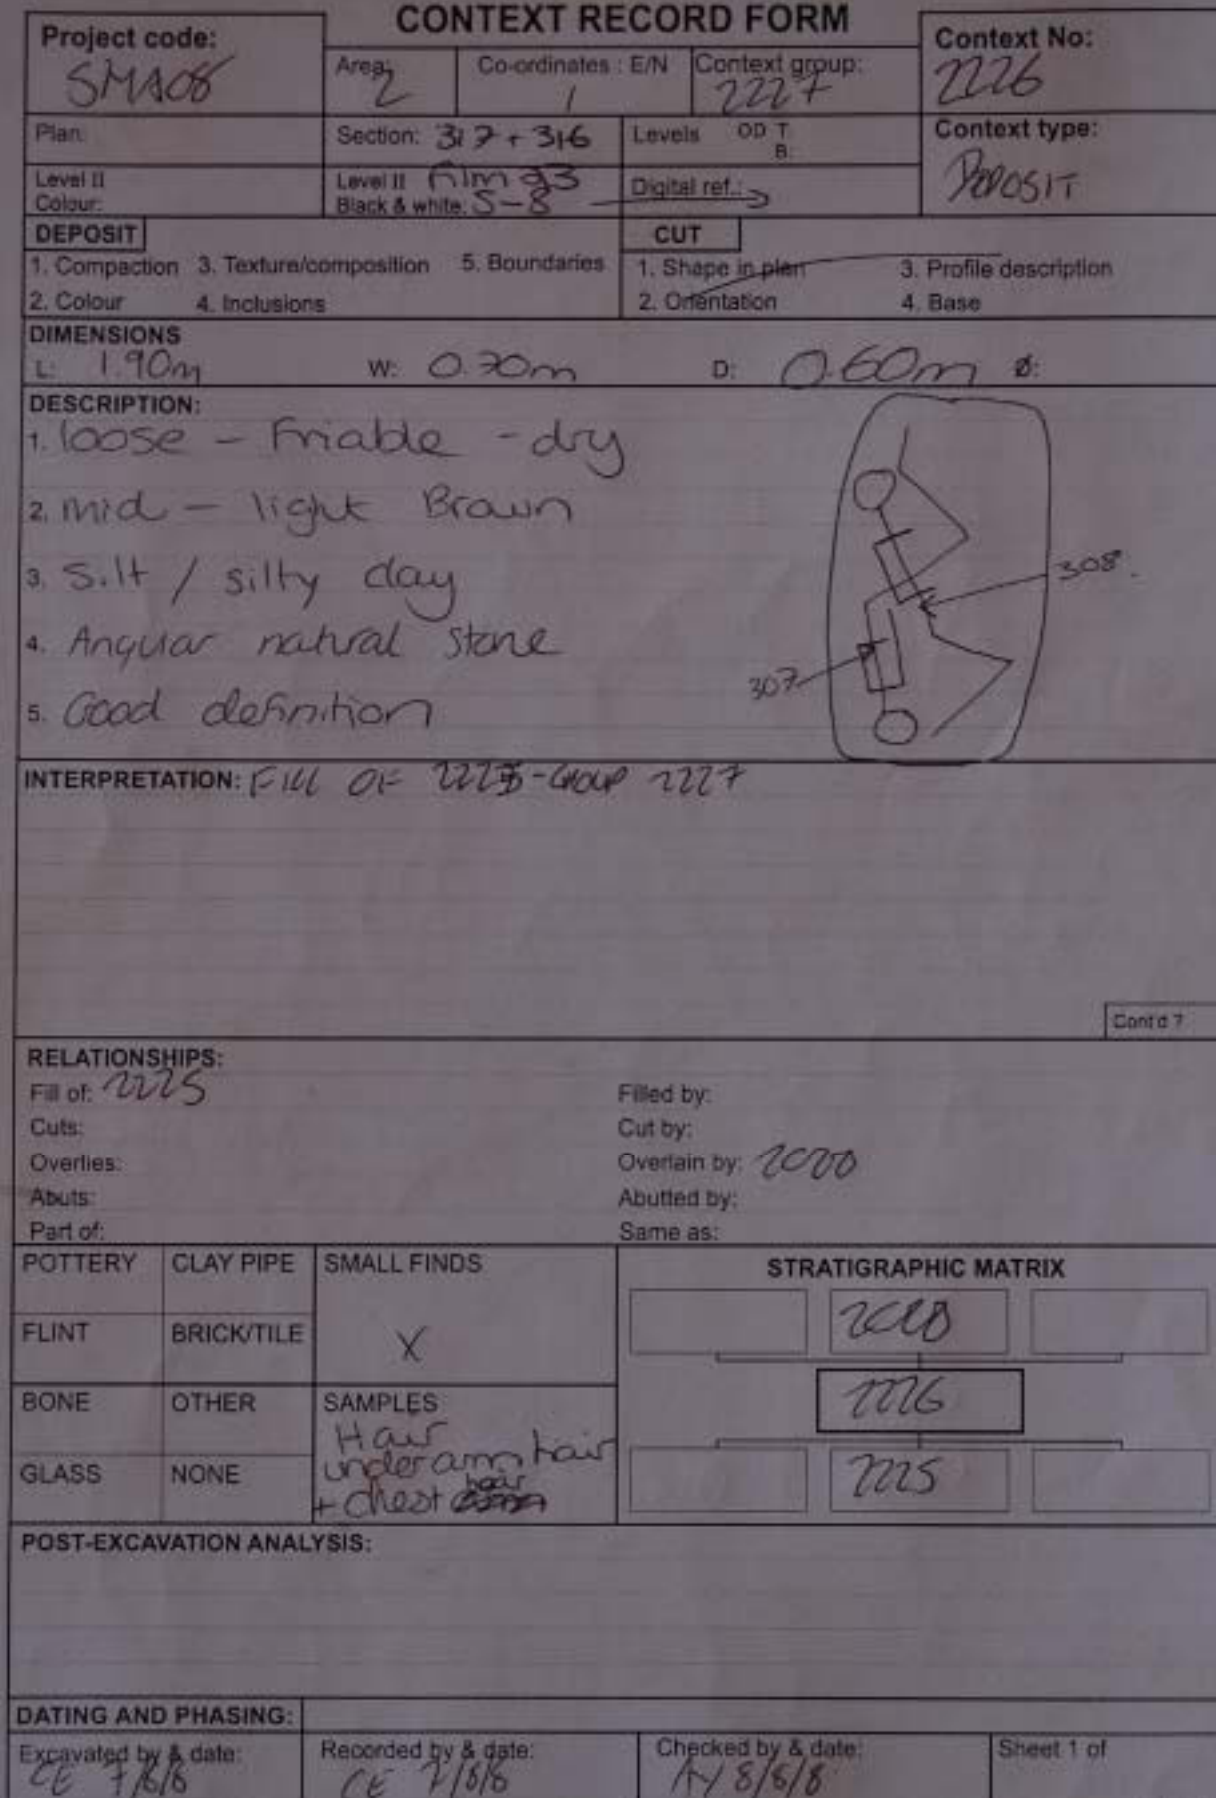 CONTEXT RECORD FORM
Project code:
SMA08
Area:
2
Co-ordinates : E/N
/
Context group:
2227
Context No:
2226
Plan:
Section: 317 + 316
Levels OD T
B:
Context type:
DEPOSIT
Level II
Colour:
Level II Film 93
Black & white: 5-8
Digital ref.:
DEPOSIT
1. Compaction 3. Texture/composition 5. Boundaries
2. Colour 4. Inclusions
CUT
1. Shape in plan 3. Profile description
2. Orientation 4. Base
DIMENSIONS
L: 1.90m W: 0.70m D: 0.60m Ø:
DESCRIPTION:
1. loose - Friable - dry
2. mid - light Brown
3. Silt / silty clay
4. Angular natural stone
5. Good definition
308.
307
INTERPRETATION: FILL OF 2225 - GROUP 2227
Cont'd ?
RELATIONSHIPS:
Fill of: 2225
Filled by:
Cuts:
Cut by:
Overlies:
Overlain by: 2000
Abuts:
Abutted by:
Part of:
Same as:
POTTERY CLAY PIPE SMALL FINDS
FLINT BRICK/TILE X
BONE OTHER SAMPLES
Hair
underarm hair
+ chest hair
GLASS NONE
STRATIGRAPHIC MATRIX
2000
2226
2225
POST-EXCAVATION ANALYSIS:
DATING AND PHASING:
Excavated by & date:
CE 7/8/8
Recorded by & date:
CE 7/8/8
Checked by & date:
8/8/8
Sheet 1 of